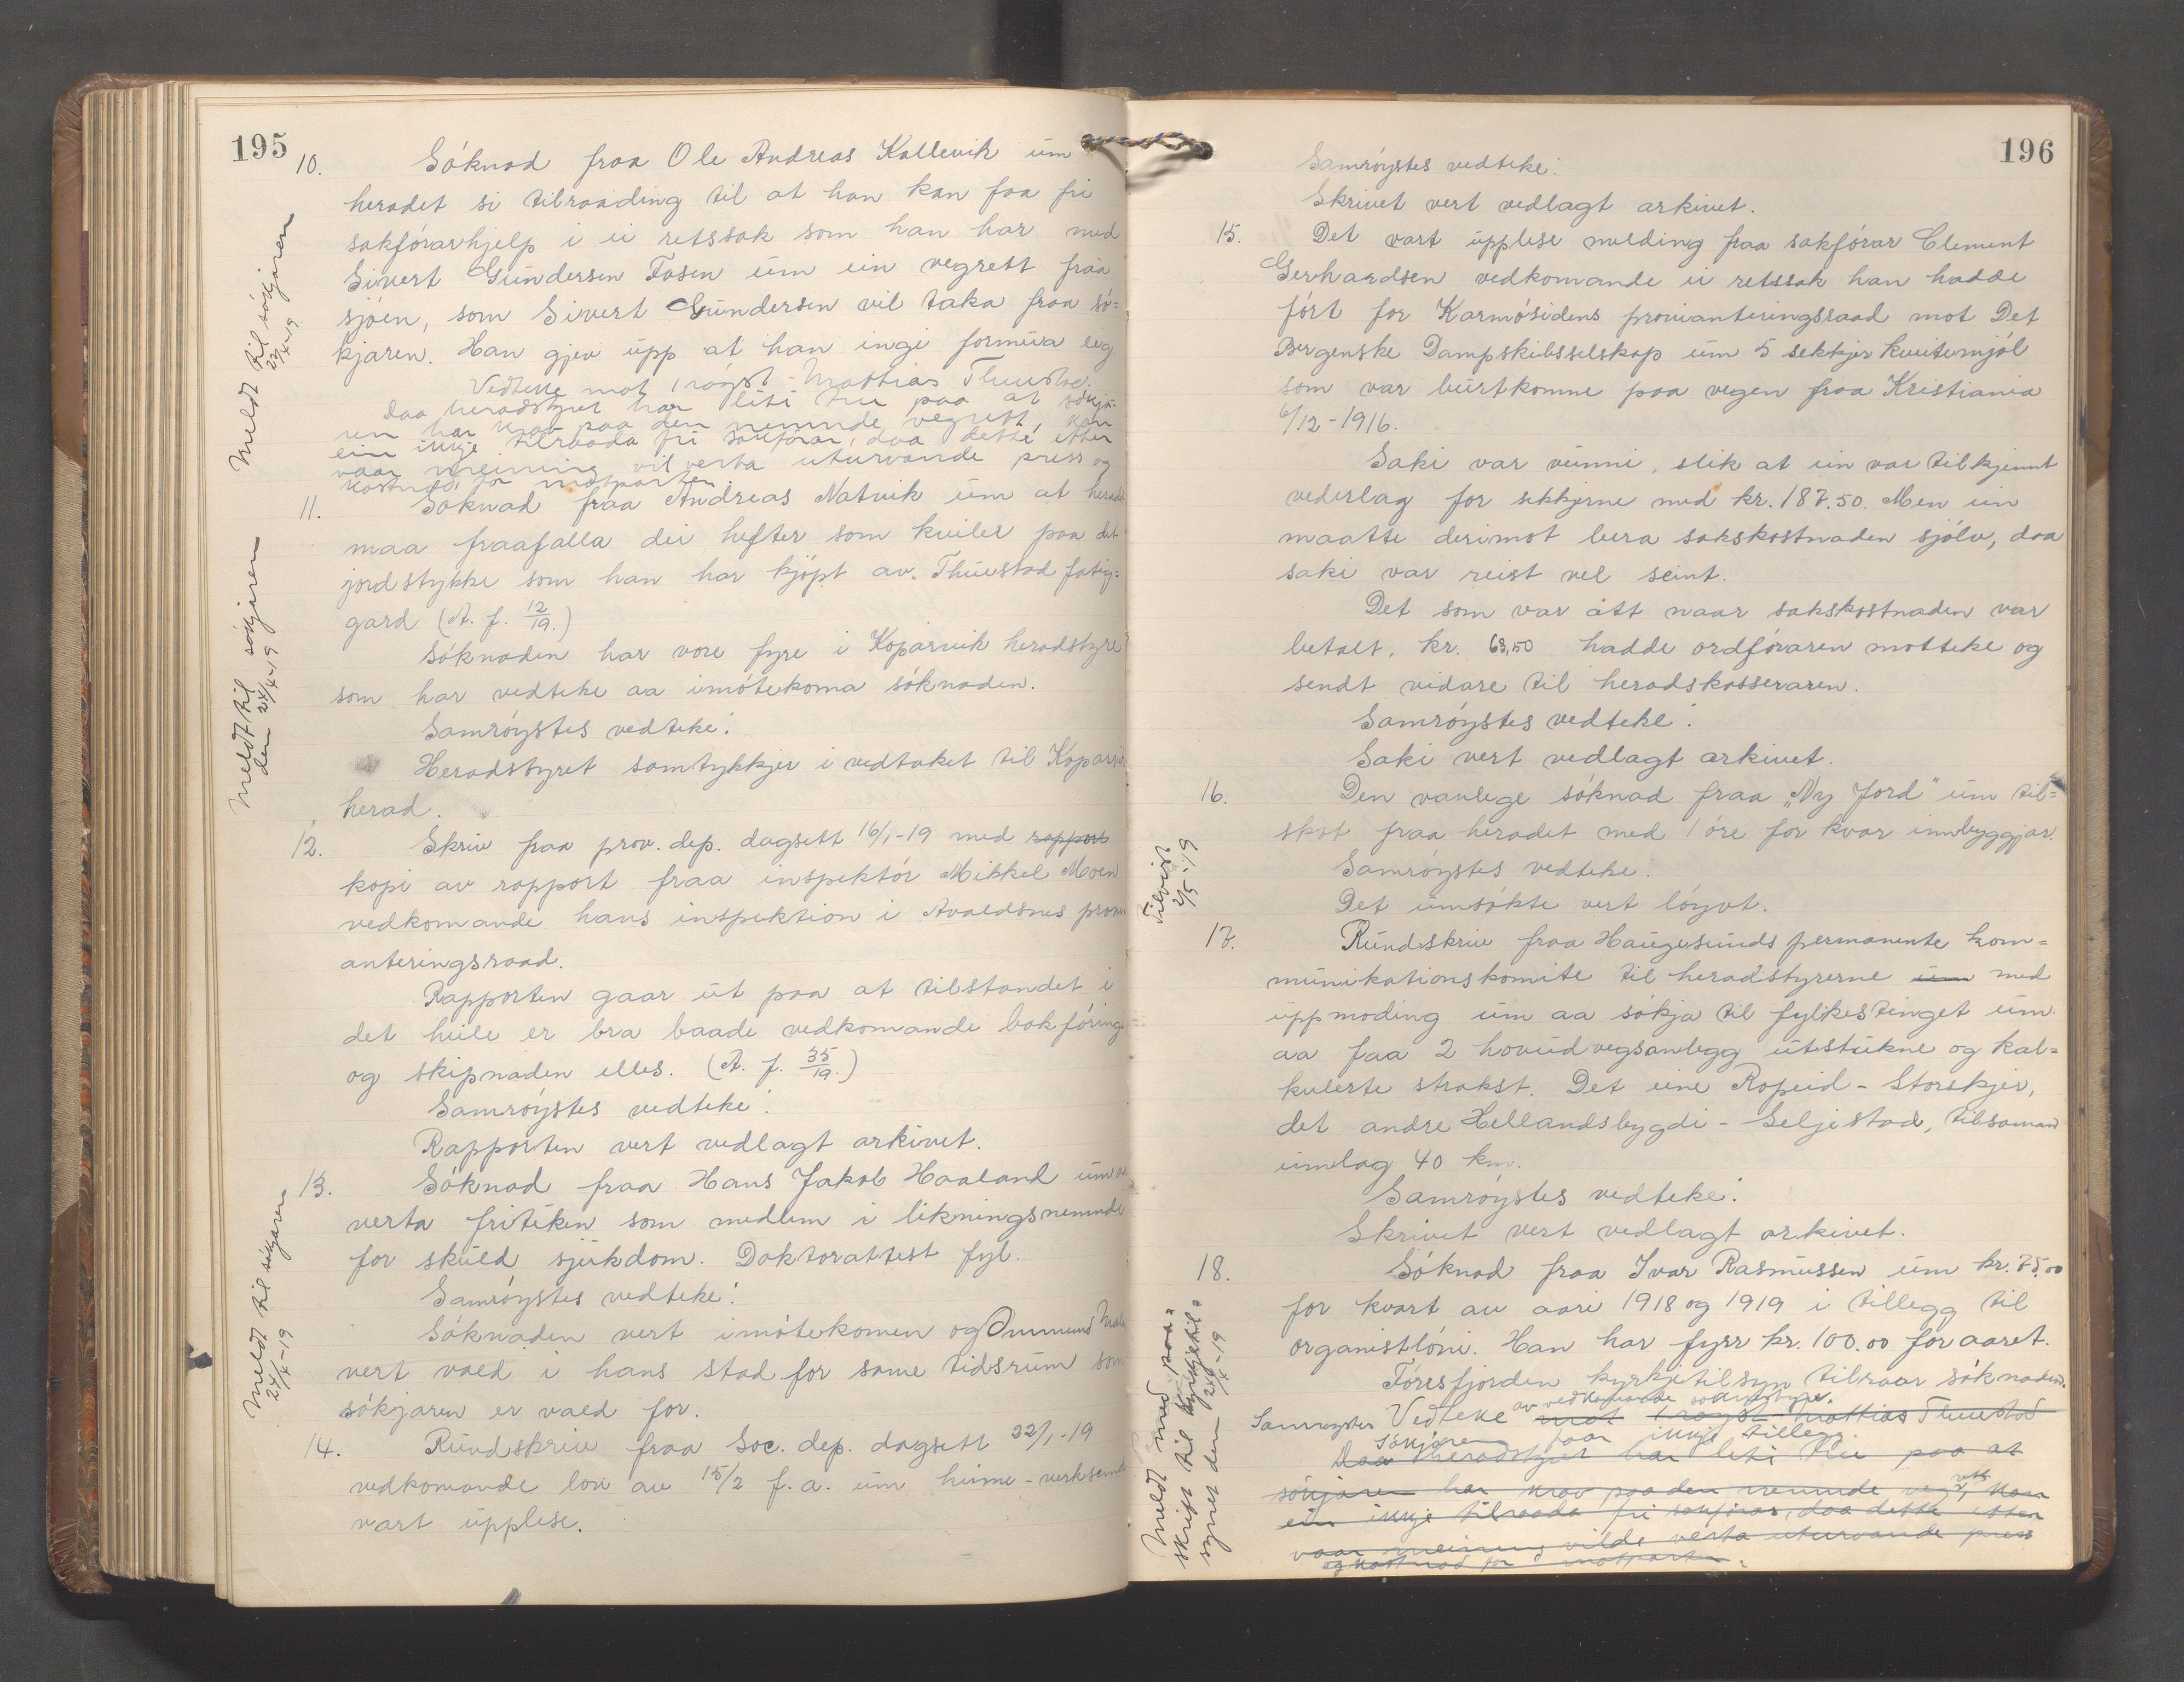 195
10. Söknad fraa Ole Andreas Kallevik um
heradet si tilraading til at han kan faa fri
sakförarhjelp i ei retssak som han har med
Sivert Gundersen Fosen um ein vegrett fraa
sjöen, som Sivert Gundersen vil taka fraa sö=
kjaren. Han gjev upp at han ingi formua eig
Vedteke mot 1 röyst - Mattias Thuestad.
Daa heradstyret har liti tru paa at sökja-
ren har krav paa den nemnde vegrett, kan
ein ikkje tilraada fri sakförar, daa dette etter
vaar meining vil verta uturvande press og
kostnad for motparten.
Meldt til sökjaren
11. Söknad fraa Andreas Natvik um at herad
maa fraafalla dei hefter som kviler paa det
jordstykke som han har kjöpt av Thuestad fatig=
gard (A. f. 12/19.)
Söknaden har vore fyre i Koparvik heradstyre
som har vedteke aa imötekoma söknaden.
Samröystes vedteke:
Heradstyret samtykkjer i vedtaket til Koparvik
herad.
Meldt til sökjaren
den 24/x-19
12. Skriv fraa prov. dep. dagsett 16/1-19 med rapport
kopi av rapport fraa inspektör Mikkel Moen
vedkomande hans inspektion i Avaldsnes provi
anteringsraad.
Rapporten gaar ut paa at tilstandet i
det heile er bra baade vedkomande bokföringi
og skipnaden elles. (A. f. 35/19.)
Samröystes vedteke:
Rapporten vert vedlagt arkivet.
13. Söknad fraa Hans Jakob Haaland um aa
verta friteken som medlem i likningsnemnde
for skuld sjukdom. Doktorattest fyl.
Samröystes vedteke:
Söknaden vert imötekomen og Ommund
vert vald i hans stad for same tidsrum som
sökjaren er vald for.
Meldt til sökjaren
24/x-19
14. Rundskriv fraa Soc. dep. dagsett 22/1-19
vedkomande lov av 15/2 f.a. um heime-verksemd
vart upplese.
196
Samröystes vedteke:
Skrivet vert vedlagt arkivet.
15. Det vart upplese melding fraa sakförar Clement
Gerhardsen vedkomande ei retssak han hadde
fört for Karmösidens provianteringsraad mot Det
Bergenske Dampskibsselskap um 5 sekkjer kveitemjöl
som var burtkomne paa vegen fraa Kristiania
6/12-1916.
Saki var vunni, slik at ein var tilkjennt
vederlag for sekkjerne med kr. 187.50. Men ein
maatte derimot bera sakskostnaden sjölv, daa
saki var reist vel seint.
Det som var att naar sakskostnaden var
betalt, kr. 63,50 hadde ordföraren motteke og
sendt vidare til heradskasseraren.
Samröystes vedteke:
Saki vert vedlagt arkivet.
16. Den vanlege söknad fraa „Ny Jord" um til=
skot fraa heradet med 1 öre for kvar innbyggjar.
Samröystes vedteke:
Det umsökte vert löyvt.
Tilvist
2/5-19
17. Rundskriv fraa Haugesunds permanente kom=
munikationskomite til heradstyrerne um med
uppmoding um aa sökja til fylkestinget um
aa faa 2 hovudvegsanlegg utstukne og kal=
kulerte strakst. Det eine Ropeid - Storskjer,
det andre Hellandsbygdi - Seljestad, tilsaman
umlag 40 km.
Samröystes vedteke:
Skrivet vert vedlagt arkivet.
18. Söknad fraa Ivar Rasmussen um kr. 75.00
for kvart av aari 1918 og 1919 i tillegg til
organistlöni. Han har fyrr kr. 100.00 for aaret.
Föresfjorden kyrkjetilsyn tilraar söknaden.
av vedkomande
Samröystes Vedteke mot 1 röyst - Mattias Thuestad
Sökjaren faar ikkje tillegg.
Daa heradstyret har liti tru paa at
sökjaren har krav paa den nemnde vegrett, kan
ein ikkje tilraada fri sakförar, daa dette etter
vaar meining vilde verta uturvande press
og kostnad for motparten.
Meldt med paa=
skrift til kyrkjetil=
synet den 24/x-19